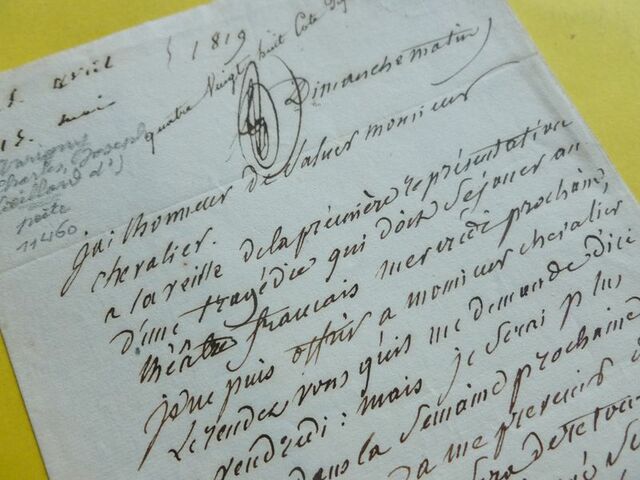 avril 1819
15. mai
quatre Vingt huit Cote
Dimanche matin
Charles, Joseph
poète
11460
j'ai l'honneur de Saluer monsieur
chevalier.
a la veille de la première représentation
d'une tragédie qui doit Se jouer au
théâtre français mercredi prochain,
je ne puis offrir a monsieur chevalier
Le rendez vous qu'il me demande d'ici
vendredi : mais je Serai plus
dans la Semaine prochaine
me
de retour